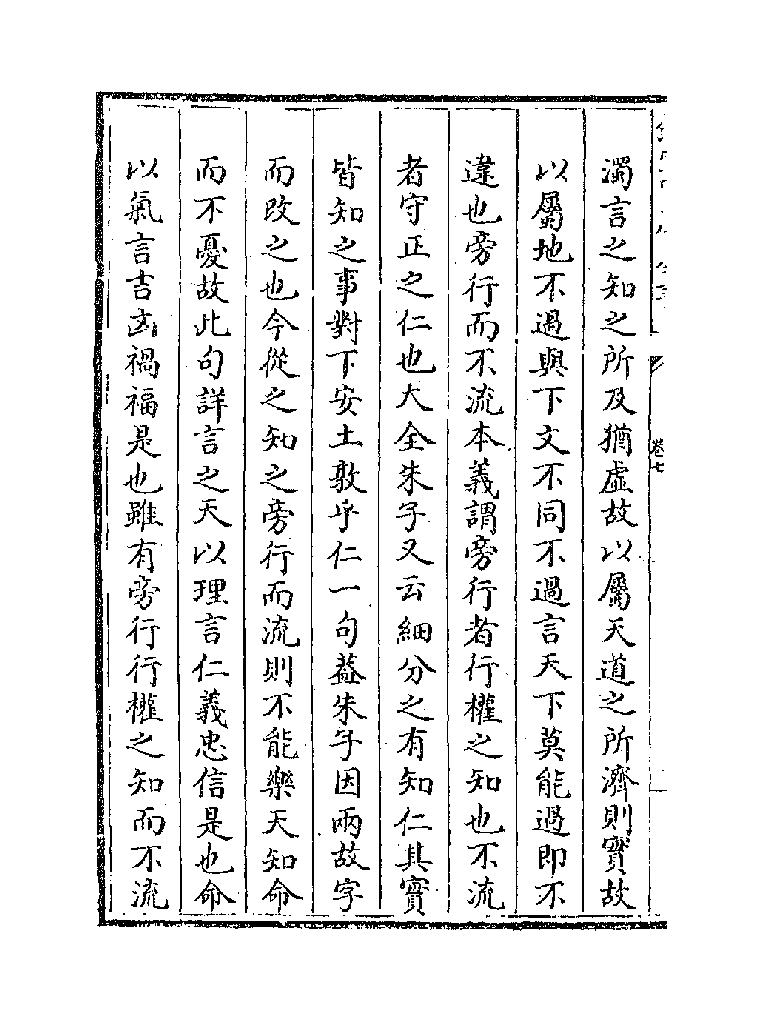 濁言之知之所及猶虛故以屬天道之所濟則實故
以屬地不過與下文不同不過言天下莫能過即不
違也旁行而不流本義謂旁行者行權之知也不流
者守正之仁也大全朱子又云細分之有知仁其實
皆知之事對下安土敦乎仁一句葢朱子因兩故字
而改之也今從之知之旁行而流則不能樂天知命
而不憂故此句詳言之天以理言仁義忠信是也命
以氣言吉凶禍福是也雖有旁行行權之知而不流
卷七